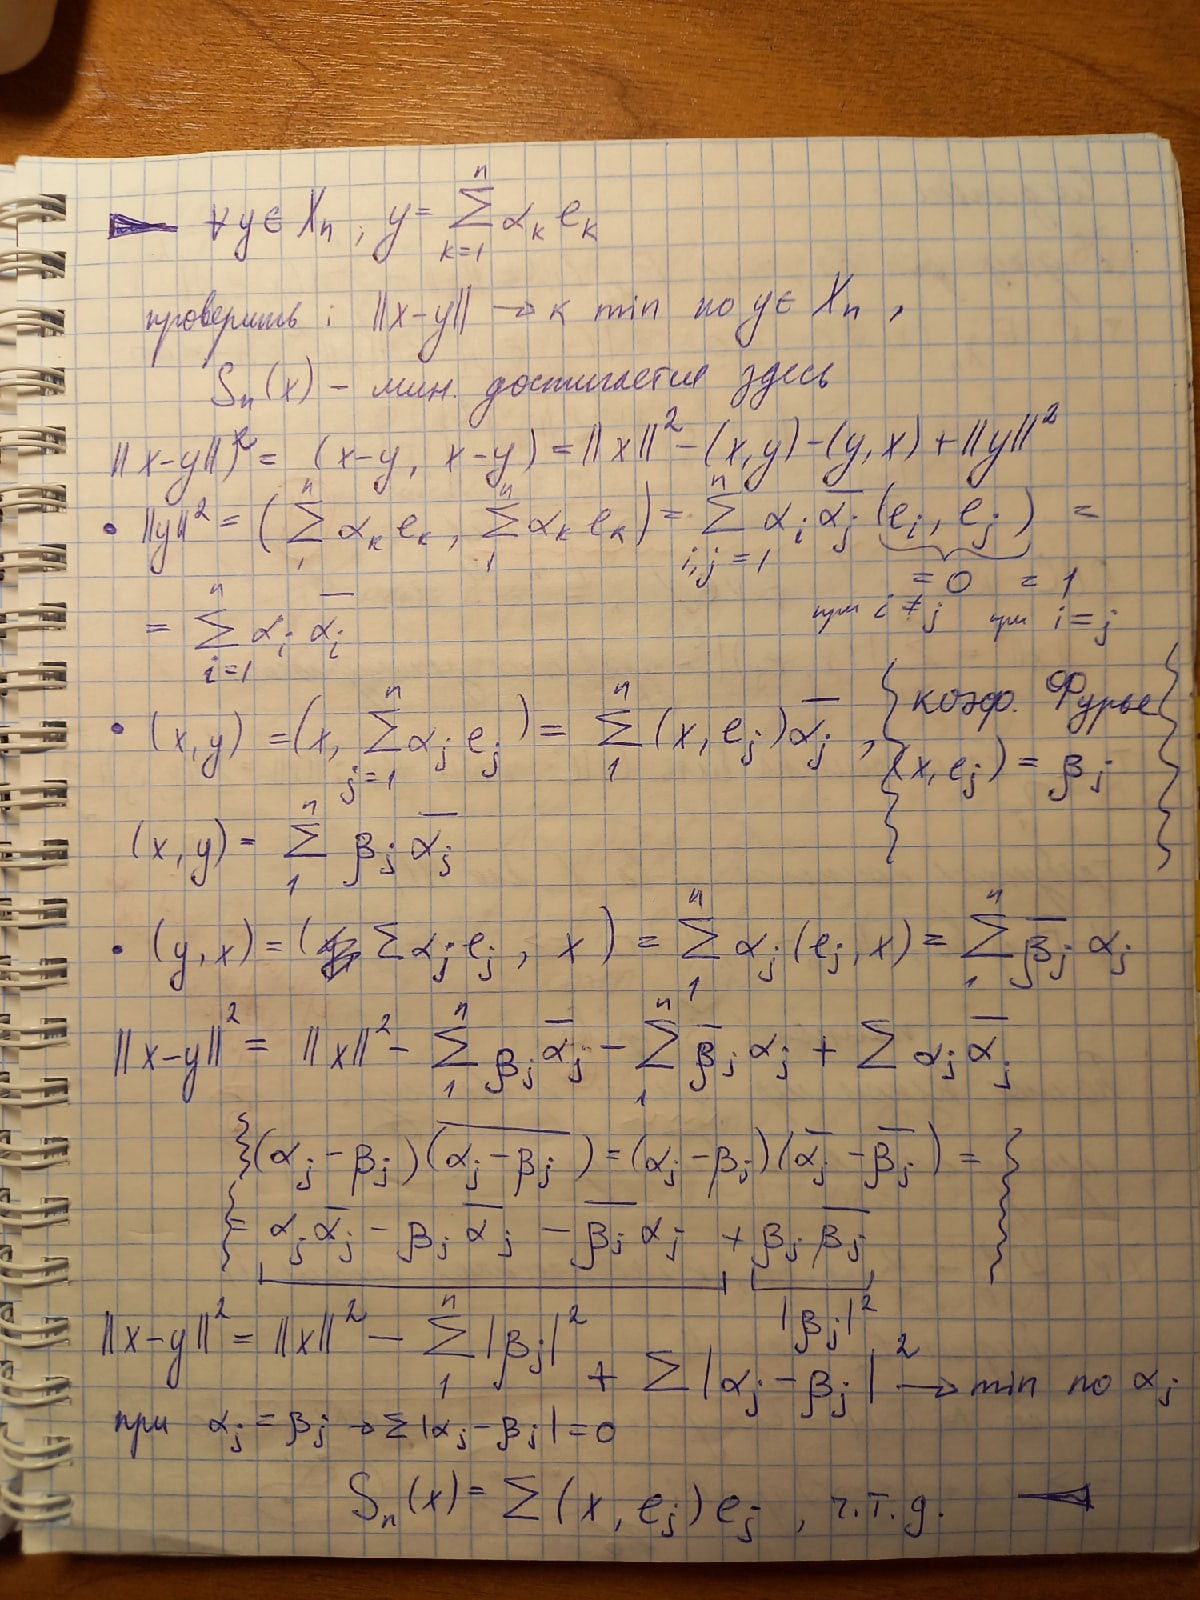 ∀ y ∈ Xₙ, y = ∑_{k=1}^{n} αₖ eₖ
проверить: ||x-y|| → к min по y ∈ Xₙ,
Sₙ(x) - мин. достигается здесь
||x-y||² = (x-y, x-y) = ||x||² - (x,y) - (y,x) + ||y||²
• ||y||² = (∑_{1}^{n} αₖ eₖ, ∑_{1}^{n} αₖ eₖ) = ∑_{i,j=1}^{n} αᵢ α̅ⱼ (eᵢ, eⱼ) =
= 0 при i ≠ j = 1 при i = j
= ∑_{i=1}^{n} αᵢ α̅ᵢ
• (x,y) = (x, ∑_{j=1}^{n} αⱼ eⱼ) = ∑_{1}^{n} (x, eⱼ) α̅ⱼ, { коэф. Фурье (x, eⱼ) = βⱼ }
(x,y) = ∑_{1}^{n} βⱼ α̅ⱼ
• (y,x) = (∑ αⱼ eⱼ, x) = ∑_{1}^{n} αⱼ (eⱼ, x) = ∑_{1}^{n} β̅ⱼ αⱼ
||x-y||² = ||x||² - ∑_{1}^{n} βⱼ α̅ⱼ - ∑_{1}^{n} β̅ⱼ αⱼ + ∑ αⱼ α̅ⱼ
{ (αⱼ - βⱼ)(\overline{αⱼ - βⱼ}) = (αⱼ - βⱼ)(α̅ⱼ - β̅ⱼ) =
= αⱼ α̅ⱼ - βⱼ α̅ⱼ - β̅ⱼ αⱼ + βⱼ β̅ⱼ }
|βⱼ|²
||x-y||² = ||x||² - ∑_{1}^{n} |βⱼ|² + ∑ |αⱼ - βⱼ|² → min по αⱼ
при αⱼ = βⱼ → ∑ |αⱼ - βⱼ| = 0
Sₙ(x) = ∑ (x, eⱼ) eⱼ, ч.т.д.